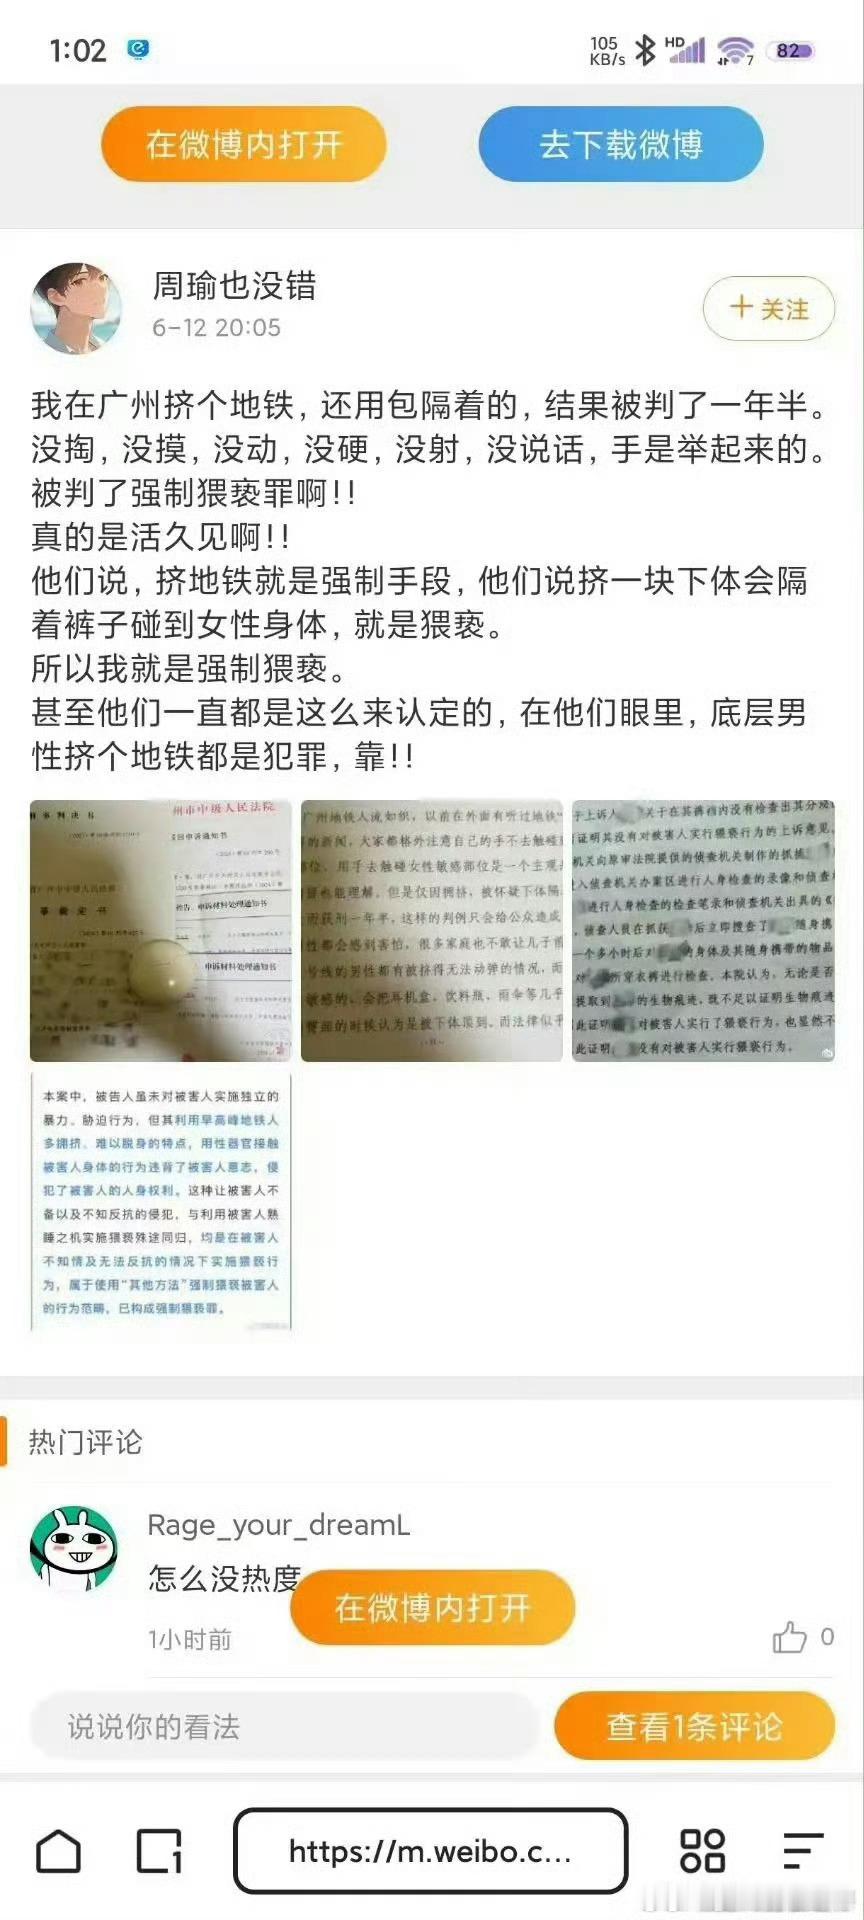 1:02
105
KB/s
HD
7
82
在微博内打开
去下载微博
周瑜也没错
6-12 20:05
+关注
我在广州挤个地铁，还用包隔着的，结果被判了一年半。
没掏，没摸，没动，没硬，没射，没说话，手是举起来的。
被判了强制猥亵罪啊！！
真的是活久见啊！！
他们说，挤地铁就是强制手段，他们说挤一块下体会隔
着裤子碰到女性身体，就是猥亵。
所以我就是强制猥亵。
甚至他们一直都是这么来认定的，在他们眼里，底层男
性挤个地铁都是犯罪，靠！！
州市中级人民法院
申诉材料处理通知书
申诉材料处理通知书
广州地铁人流如织，以前在外面有听过地铁
的新闻，大家都格外注意自己的手不去触碰
部位，用手去触碰女性敏感部位是一个主观
也能理解。但是仅因拥挤，被怀疑下体隔
而获刑一年半，这样的判例只会给公众造成
性都会感到害怕，很多家庭也不敢让儿子
号线的男性都有被挤得无法动弹的情况，而
敏感的，会把耳机盒、饮料瓶、雨伞等几乎
臂部的时候认为是被下体顶到，而法律似乎
于上诉人 关于在其裤裆内没有检查出其分泌
证明其没有对被害人实行猥亵行为的上诉意见，
机关向原审法院提供的侦查机关制作的抓捕
入侦查机关办案区进行人身检查的录像和侦查
进行人身检查的检查笔录和侦查机关出具的《
侦查人员在抓获 后立即搜查了 随身携
一个多小时后对 的身体及其随身携带的物品
对 所穿衣裤进行检查。本院认为，无论是否
提取到 的生物痕迹，既不足以证明生物痕迹
此证明 对被害人实行了猥亵行为，也显然不
此证明 没有对被害人实行猥亵行为。
本案中，被告人虽未对被害人实施独立的
暴力、胁迫行为，但其利用早高峰地铁人
多拥挤、难以脱身的特点，用性器官接触
被害人身体的行为违背了被害人意志，侵
犯了被害人的人身权利。这种让被害人不
备以及不知反抗的侵犯，与利用被害人熟
睡之机实施猥亵殊途同归，均是在被害人
不知情及无法反抗的情况下实施猥亵行
为，属于使用“其他方法”强制猥亵被害人
的行为范畴，已构成强制猥亵罪。
热门评论
Rage_your_dreamL
怎么没热度
在微博内打开
1小时前
0
说说你的看法
查看1条评论
1
https://m.weibo.c...